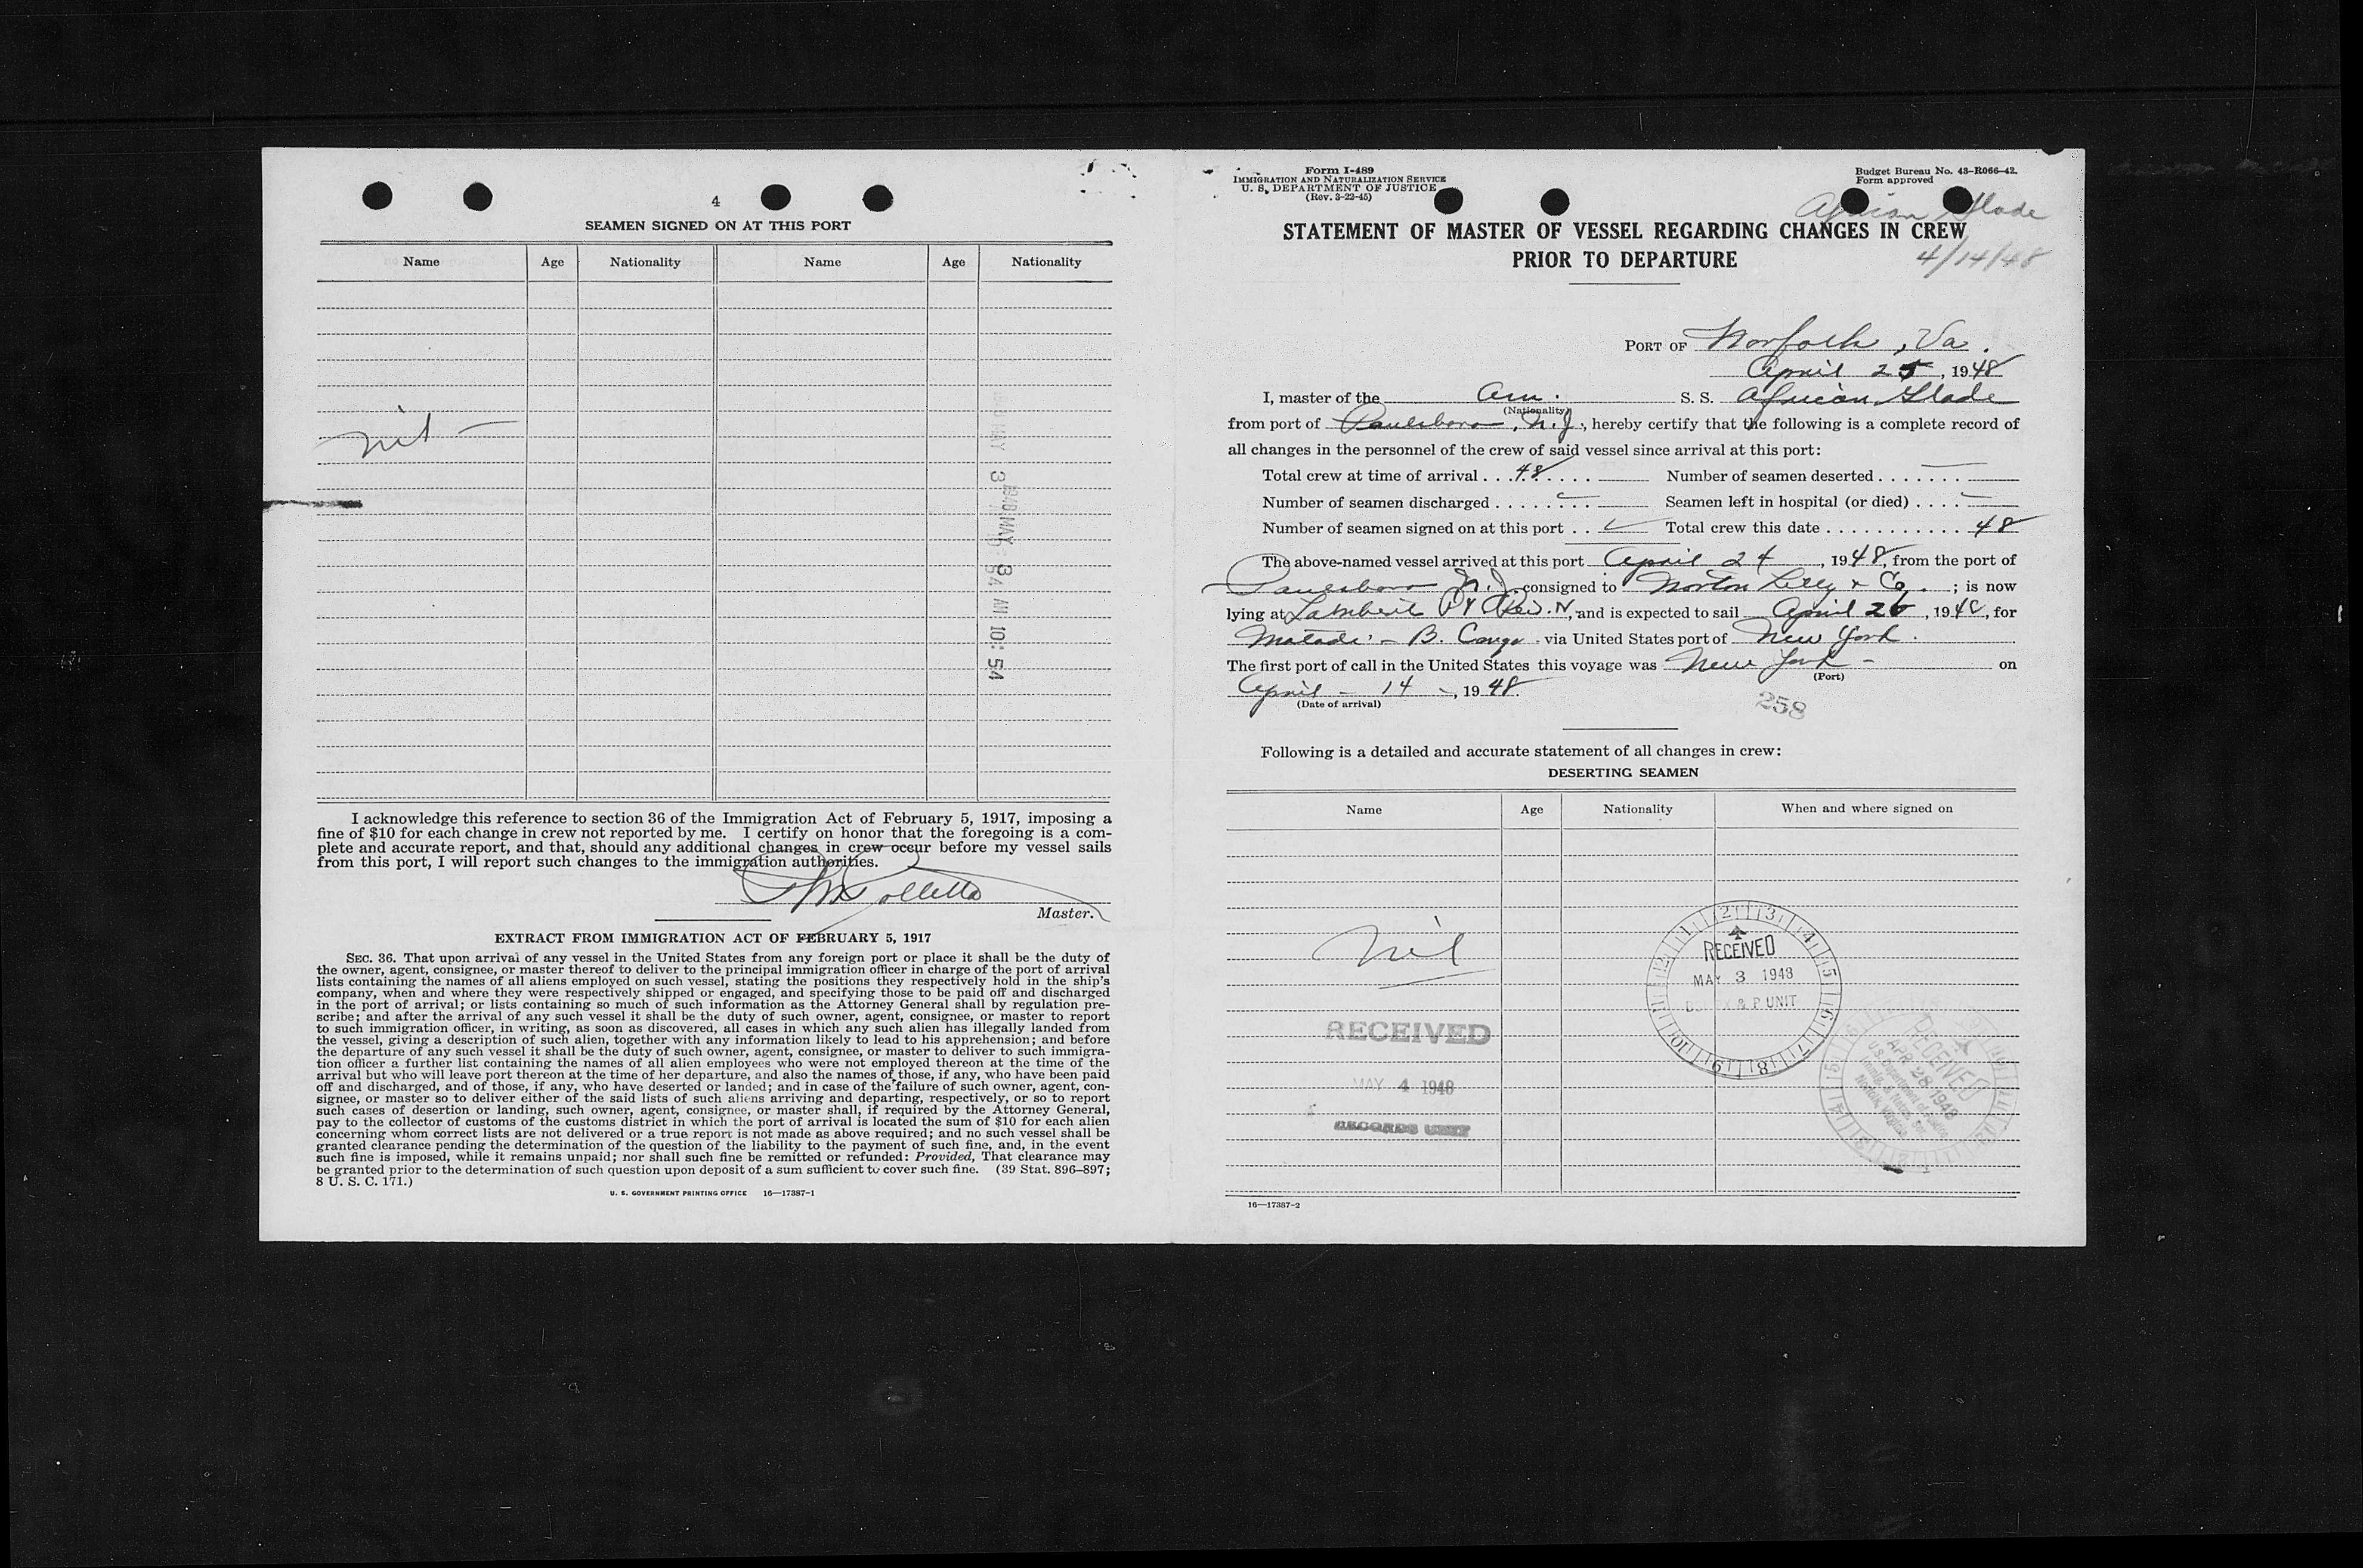 4
SEAMEN SIGNED ON AT THIS PORT
Name Age Nationality Name Age Nationality
nil —
1948 MAY 3 AM 10:54
I acknowledge this reference to section 36 of the Immigration Act of February 5, 1917, imposing a
fine of $10 for each change in crew not reported by me. I certify on honor that the foregoing is a com-
plete and accurate report, and that, should any additional changes in crew occur before my vessel sails
from this port, I will report such changes to the immigration authorities.
Master.
EXTRACT FROM IMMIGRATION ACT OF FEBRUARY 5, 1917
SEC. 36. That upon arrival of any vessel in the United States from any foreign port or place it shall be the duty of
the owner, agent, consignee, or master thereof to deliver to the principal immigration officer in charge of the port of arrival
lists containing the names of all aliens employed on such vessel, stating the positions they respectively hold in the ship's
company, when and where they were respectively shipped or engaged, and specifying those to be paid off and discharged
in the port of arrival; or lists containing so much of such information as the Attorney General shall by regulation pre-
scribe; and after the arrival of any such vessel it shall be the duty of such owner, agent, consignee, or master to report
to such immigration officer, in writing, as soon as discovered, all cases in which any such alien has illegally landed from
the vessel, giving a description of such alien, together with any information likely to lead to his apprehension; and before
the departure of any such vessel it shall be the duty of such owner, agent, consignee, or master to deliver to such immigra-
tion officer a further list containing the names of all alien employees who were not employed thereon at the time of the
arrival but who will leave port thereon at the time of her departure, and also the names of those, if any, who have been paid
off and discharged, and of those, if any, who have deserted or landed; and in case of the failure of such owner, agent, con-
signee, or master so to deliver either of the said lists of such aliens arriving and departing, respectively, or so to report
such cases of desertion or landing, such owner, agent, consignee, or master shall, if required by the Attorney General,
pay to the collector of customs of the customs district in which the port of arrival is located the sum of $10 for each alien
concerning whom correct lists are not delivered or a true report is not made as above required; and no such vessel shall be
granted clearance pending the determination of the question of the liability to the payment of such fine, and, in the event
such fine is imposed, while it remains unpaid; nor shall such fine be remitted or refunded: Provided, That clearance may
be granted prior to the determination of such question upon deposit of a sum sufficient to cover such fine. (39 Stat. 896-897;
8 U. S. C. 171.)
U. S. GOVERNMENT PRINTING OFFICE 16—17387-1
Form I-489
IMMIGRATION AND NATURALIZATION SERVICE
U. S. DEPARTMENT OF JUSTICE
(Rev. 3-22-45)
Budget Bureau No. 43-R066-42.
Form approved
African Glade
4/14/48
STATEMENT OF MASTER OF VESSEL REGARDING CHANGES IN CREW
PRIOR TO DEPARTURE
PORT OF Norfolk, Va.
April 25, 1948
I, master of the Am. S. S. African Glade
(Nationality)
from port of Paulsboro, N.J., hereby certify that the following is a complete record of
all changes in the personnel of the crew of said vessel since arrival at this port:
Total crew at time of arrival . . . 48 . . . . Number of seamen deserted . . . . . . . —
Number of seamen discharged . . . . . . . . Seamen left in hospital (or died) . . . . —
Number of seamen signed on at this port . . Total crew this date . . . . . . . . . . . . 48
The above-named vessel arrived at this port April 24, 1948, from the port of
Paulsboro N.J. consigned to Norton Lilly & Co.; is now
lying at Lamberts Pt and is expected to sail April 26, 1948, for
Matadi - B. Congo via United States port of New York.
The first port of call in the United States this voyage was New York - on
(Port)
April - 14 -, 1948.
(Date of arrival)
258
Following is a detailed and accurate statement of all changes in crew:
DESERTING SEAMEN
Name Age Nationality When and where signed on
nil
RECEIVED
MAY 3 1948
& P UNIT
RECEIVED
MAY 4 1948
RECORDS UNIT
RECEIVED
APR 28 1948
U.S. Department of Justice
Norfolk, Virginia
16—17387-2